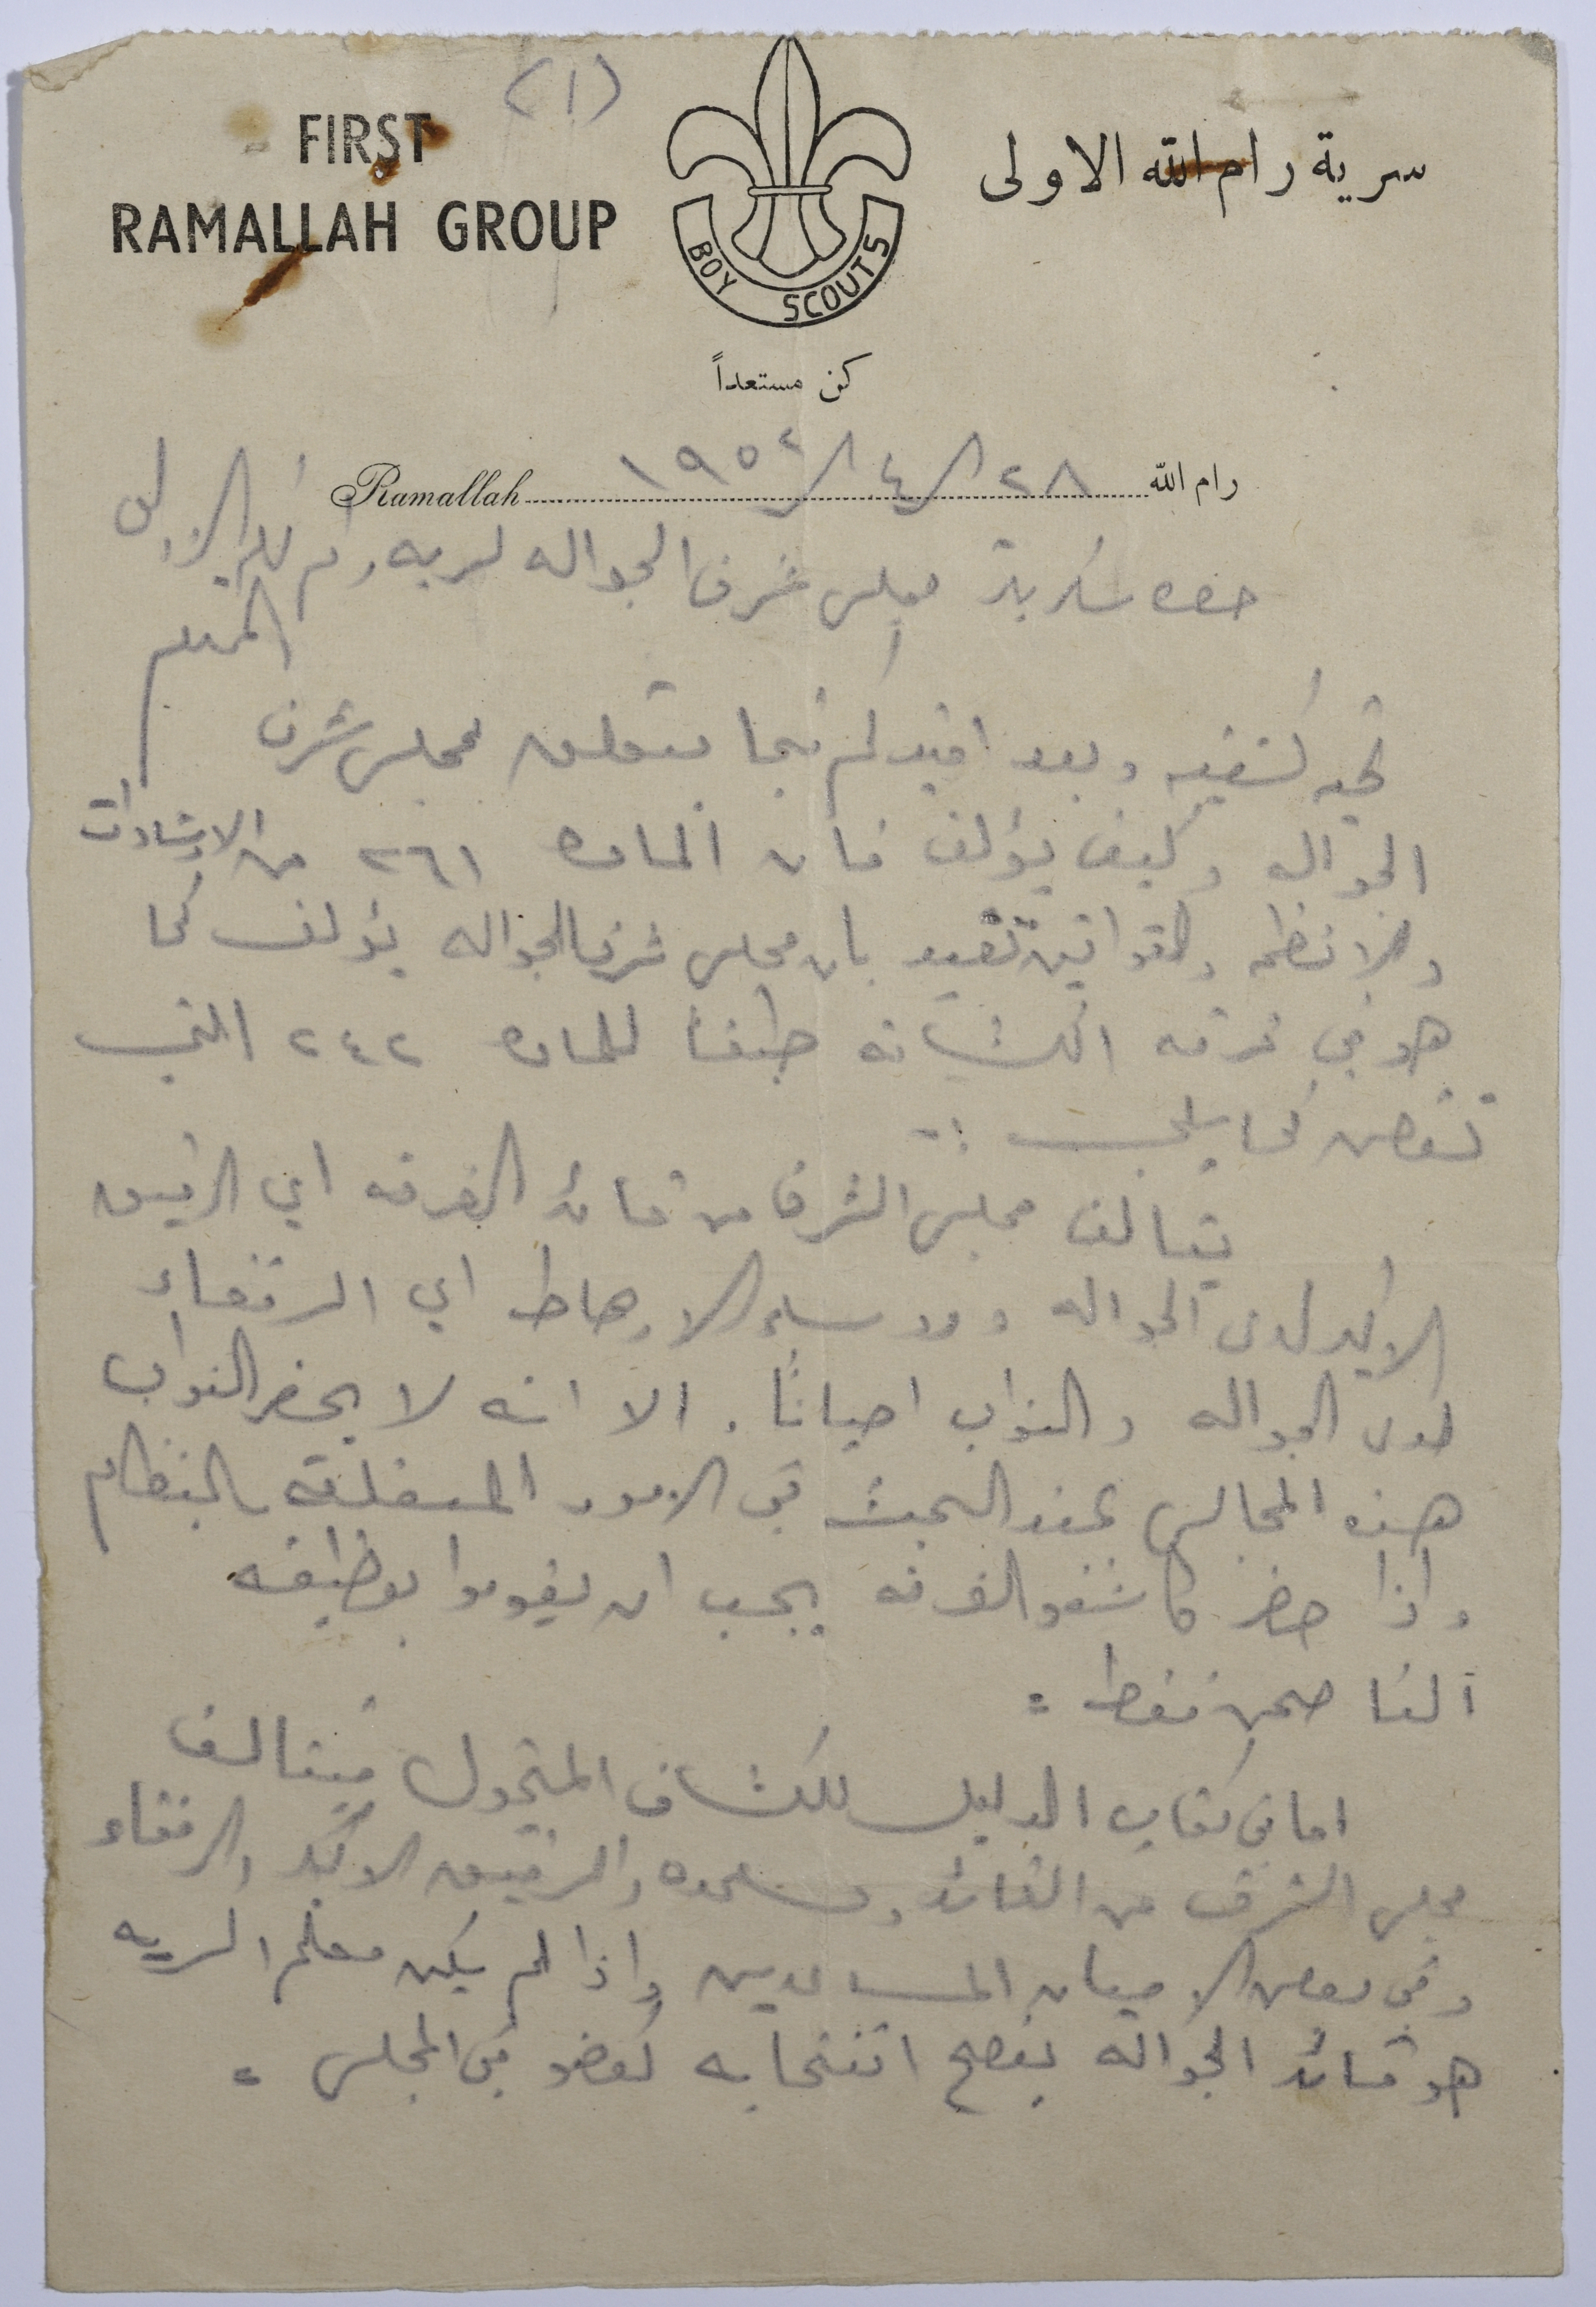 (١)
FIRST
RAMALLAH GROUP
BOY SCOUTS
سرية رام الله الاولى
كن مستعداً
رام الله ٢٨/٤/١٩٥٢ Ramallah
حضرة سكرتير مجلس شرف الجواله لسريه رام الله الاولى
المحترم
تحيه كشفيه وبعد افيدكم فيما يتعلق بمجلس شرف
الجواله وكيف يؤلف فان الماده ٢٦١ من الارشادات
والانظمه والقوانين تفيد بان مجلس شرف الجواله يؤلف كما
هو في فرقه الكشافه طبقا للماده ٢٤٢ التي
تنص كما يلي :-
يتالف مجلس الشرف من قائد الفرقه اي الرفيق
الاكبر لدى الجواله ورؤساء الارهاط اي الرفقاء
لدى الجواله والنواب احياناً. الا انه لا يحضر النواب
هذه المجالس عند البحث في الامور المتعلقة بالنظام
واذا حضر كاشفو الفرقه يجب ان يقوموا بوظيفه
الناصحين فقط .
اما في كتاب الدليل للكشاف المتجول فيتالف
مجلس الشرف من القائد ومساعده والرفيق الاكبر والرفقاء
وفي بعض الاحيان المساعدين واذا لم يكن معلم السريه
هو قائد الجواله يصح انتخابه كعضو في المجلس .